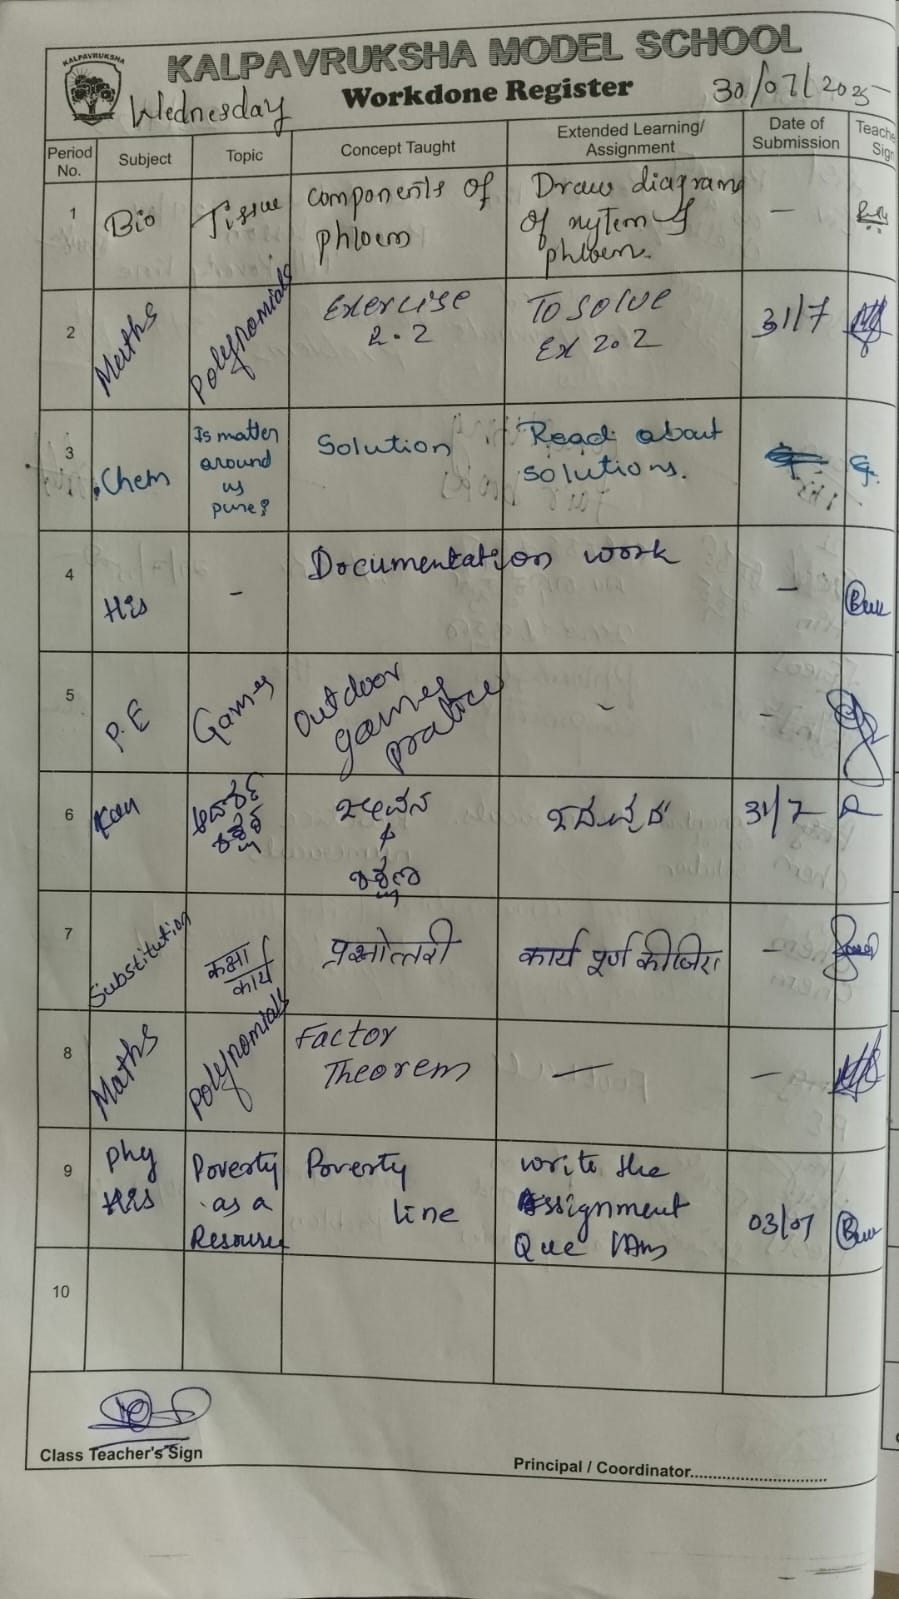 KALPAVRUKSHA
KALPAVRUKSHA MODEL SCHOOL
Wednesday Workdone Register 30/07/2025
Period No. Subject Topic Concept Taught Extended Learning/ Assignment Date of Submission Teache Sign
1 Bio Tissue components of phloem Draw diagram of xylem & phloem. —
2 Maths Polynomials Exercise 2.2 To solve Ex 2.2 31/7
3 Chem Is matter around us pure? Solution Read about solutions.
4 His - Documentation work -
5 P.E Games Outdoor games pratice - -
6 Kan 31/7
7 Substitution कक्षा कार्य प्रश्नोत्तरी कार्य पूर्ण कीजिए -
8 Maths Polynomials Factor Theorem — —
9 Phy His Poverty as a Resource Poverty line write the Assignment Que /Ans 03/07
10
Class Teacher's Sign
Principal / Coordinator..............................